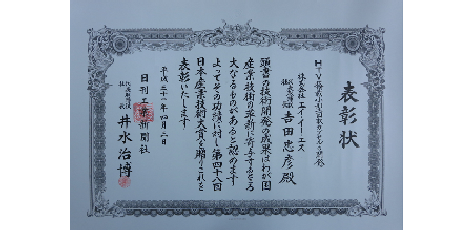 表彰状
HTV搭載小型回収カプセル
株式会社エイ・イー・エス
吉田憲彦殿
頭書の技術開発の成果はわが国
産業技術の革新に寄与するところ
大なるものがあると認めます
よってその功績に対し第四十八回
日本産業技術大賞を贈りこれを
表彰いたします
平成三十一年四月二日
日刊工業新聞社
井水治博